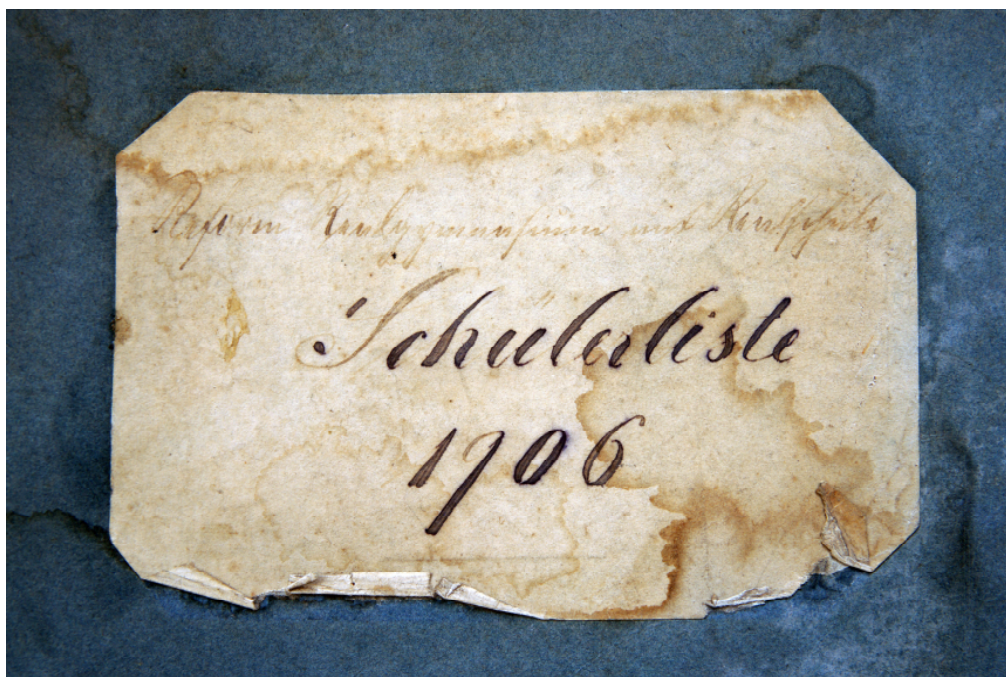 Reform Realgymnasium mit Realschule
Schülerliste
1906